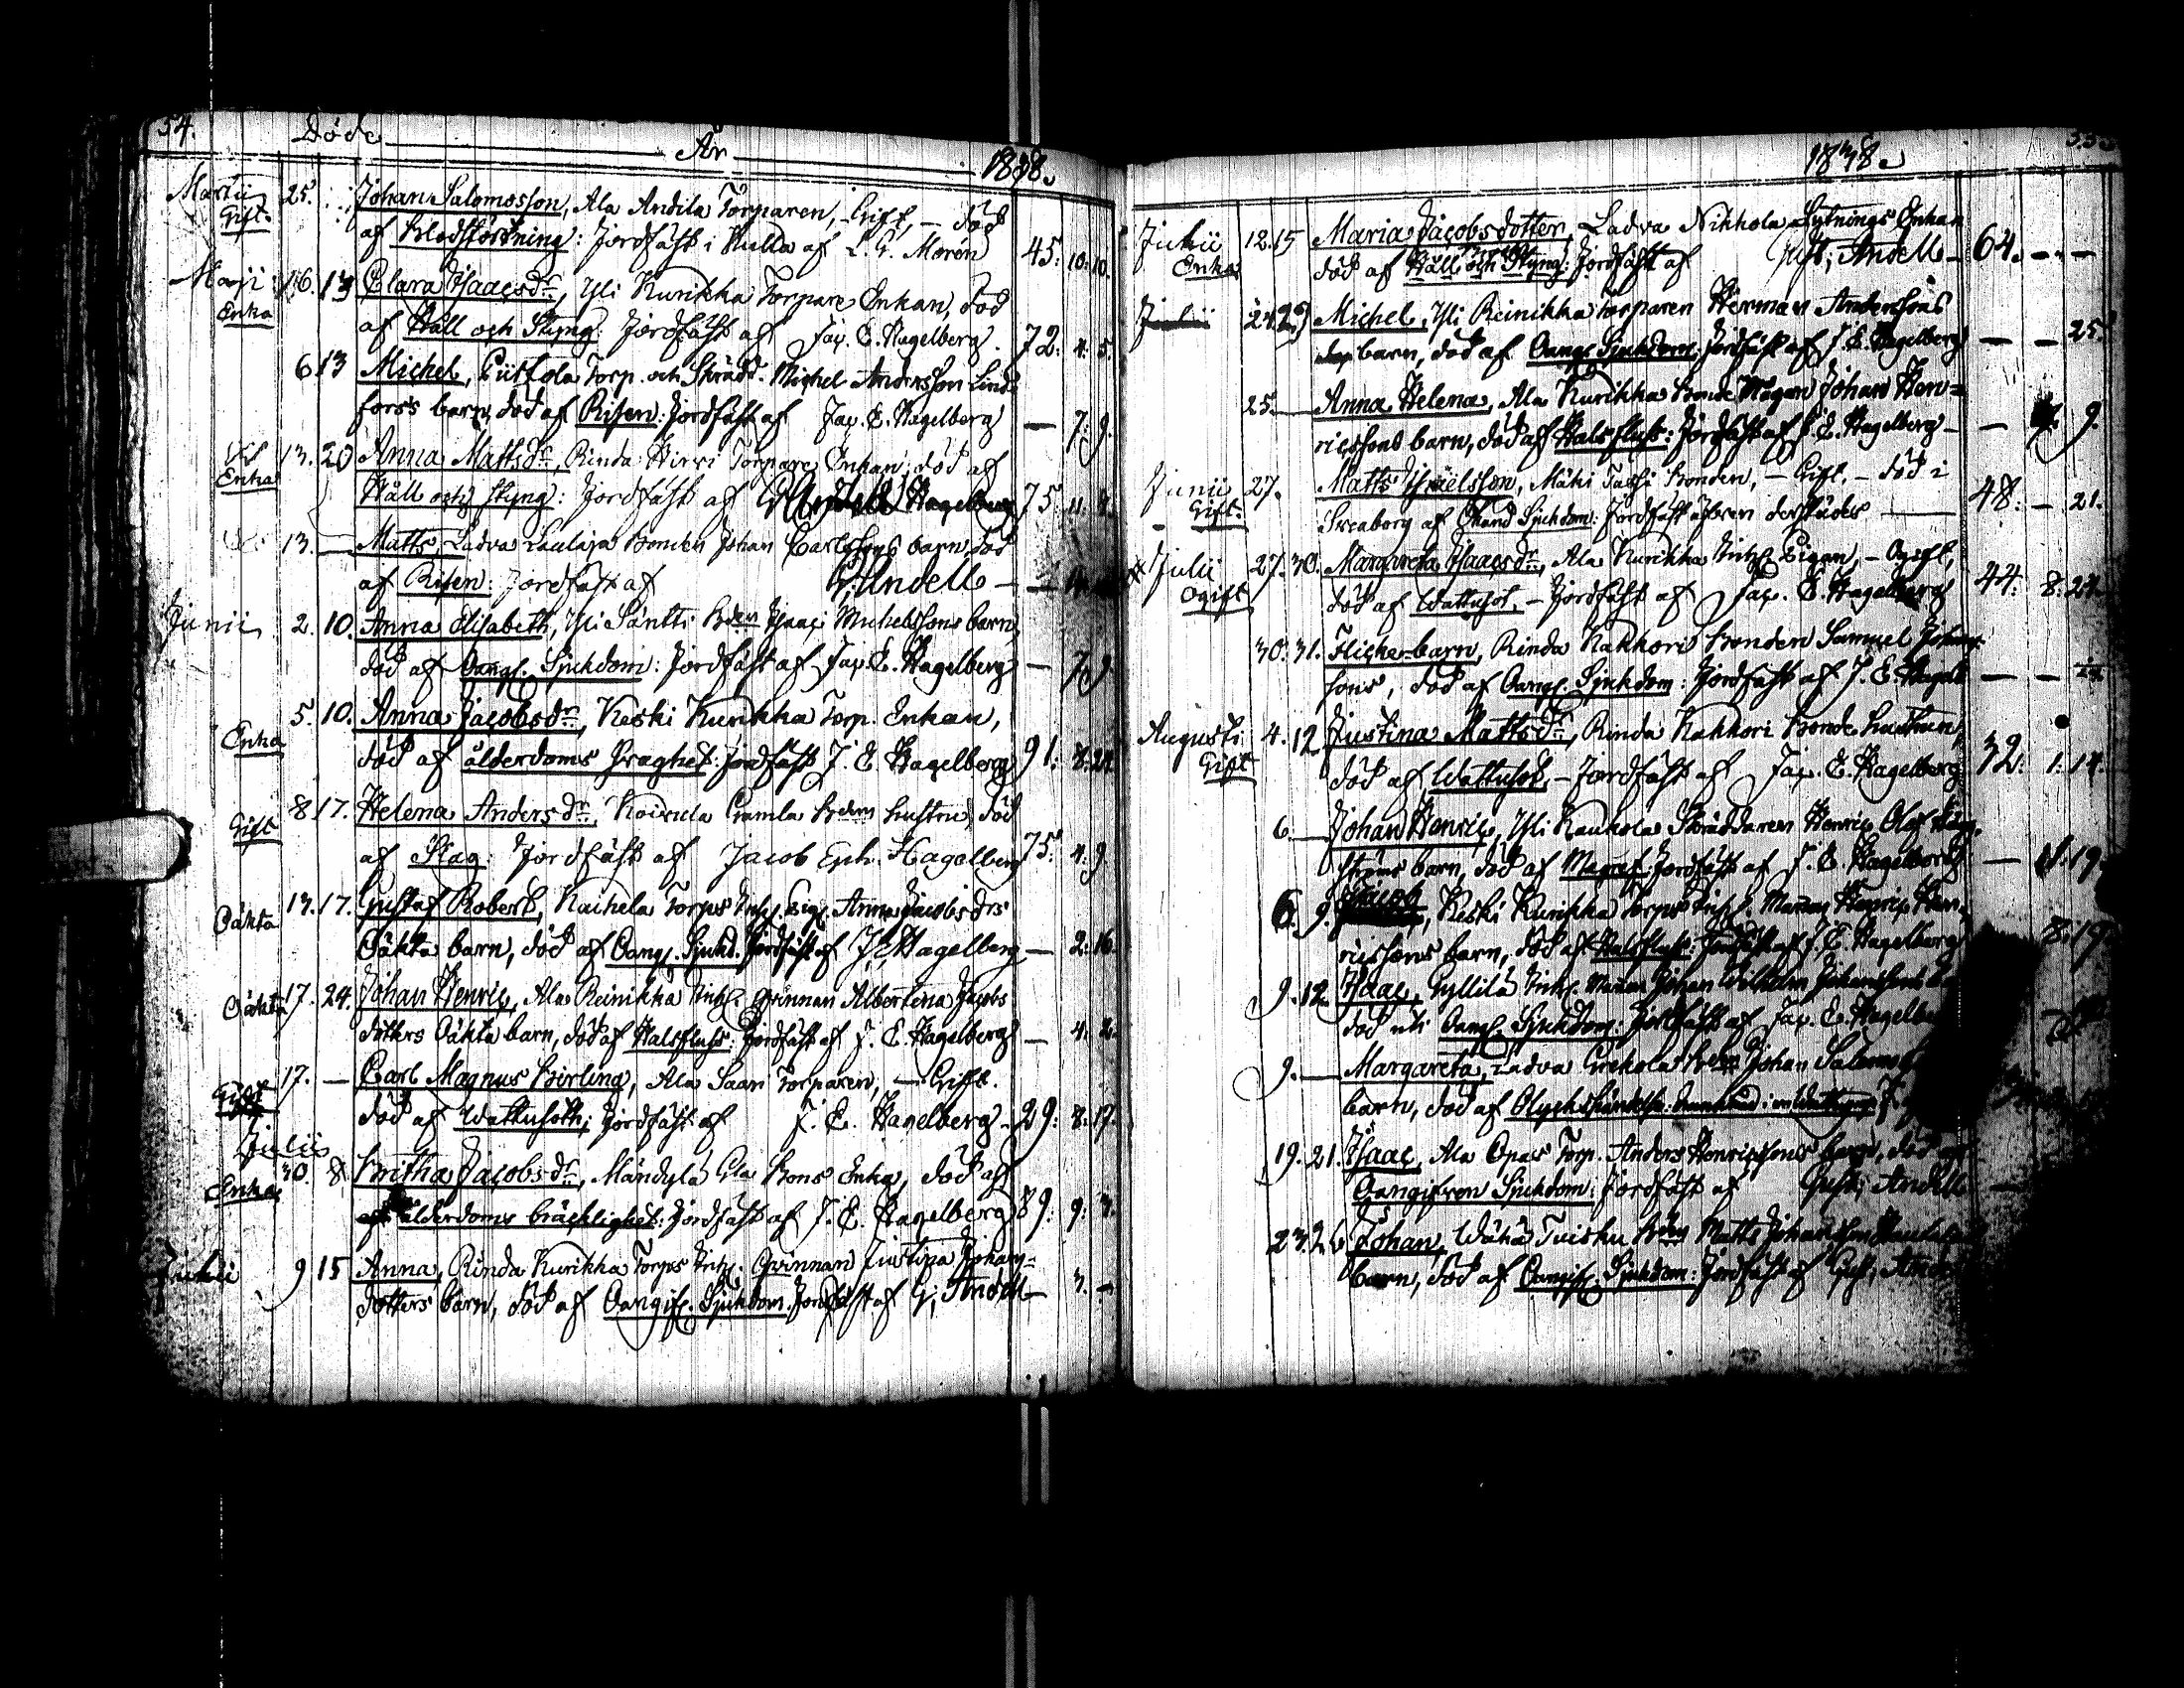 54. Döde År 1838.
Martii 25. Johan Salomosson, Ala Andila Torparen, Gift, — död
Gift. af Blodstörtning: Jordfäst i Kulla af L. G. Morén 45: 10: 10.
Maji 6. 13 Clara Isaacsdr, Yli Kurikka Torpare Enkan, död
Enka af Håll och Styng: Jordfäst af Jac. E. Hagelberg. 72: 4: 5.
6 13 Michel, Torp. och Skrädd. Michel Andersson Lind-
forss barn, död af Risen: Jordfäst af Jac. E. Hagelberg — 7: 9.
13. 20 Anna Mattsdr, Rinda Hirvi Torpare Enkan, död af
Enka Håll och styng: Jordfäst af Hagelberg 75 11
13. — Matts, Ladva Laulaja Bonden Johan Carlssons barn, död
af Risen: Jordfäst af G. Andell —
Junii 2. 10. Anna Elisabeth, Yli Säntti Bden Isaac Michelssons barn,
död af Oangf. Sjukdom: Jordfäst af Jac. E. Hagelberg — 7. 9
5. 10. Anna Jacobsdr, Keski Kurikka Torp. Enkan,
Enka död af ålderdoms Svaghet: Jordfäst J. E. Hagelberg 91: 8: 24
8 17. Helena Andersdr, Koivula Gamla Bden hustru, död
Gift af Slag: Jordfäst af Jacob Eph. Hagelberg 75: 4: 9
13. 17. Gustaf Robert, Kaihela Torps Inh. Pig. Anna Jacobs drs
Oäkta Oäkta barn, död af Oangf. Sjukd. Jordfäst af J. E. Hagelberg — 2: 16
17. 24. Johan Henric, Ala Reinikka Inh. qvinnan Albertina Jacobs
Oäkta dotters Oäkta barn, död af Halsfluss: Jordfäst af J. E. Hagelberg — 4: 2
17. — Carl Magnus Birling, Ala Saari Torparen, — Gift.
Gift död af Wattusoth; Jordfäst af J. E. Hagelberg. 29: 8: 17.
Julii
30. 8 Britha Jacobsdr, Mändylä Gla Bons Enka, död af
Enka ålderdoms bräcklighet: Jordfäst af J. E. Hagelberg 89: 9:
Julii 9 15 Anna, Rinda Kurikka Torps Inh. Qvinnan Justina Johans-
dotters barn, död af Oangif. Sjukdom. Jordfäst af G. Andell — 3. —
1838.
Julii 12. 15 Maria Jacobsdotter, Ladva Nikkola Sytnings Enkan
Enka död af Håll och Styng: Jordfäst af Gust. Andell — 64. — —
Julii 24. 29 Michel, Yli Reinikka torparen Herman Anderssons
barn, död af Oangf. Sjukdom: Jordfäst af J. E. Hagelberg — — 25.
25. — Anna Helena, Ala Kurikka Bonde Mågen Johan Hen-
ricssons barn, död af Halsfluss: Jordfäst af J. E. Hagelberg — — 9.
Junii 27. Matts Israelsson, Mäki Bonden, — Gift, — död i
Gift. Sveaborg af Okänd Sjukdom: Jordfäst äfven derstädes — 48: — 21.
Julii 27. 30. Margareta Isaacsdr, Ala Kurikka Inh. Pigan, — Ogift,
Ogift död af Wattusot, — Jordfäst af Jac. E. Hagelberg 44: 8: 24
30. 31. Flickebarn, Rinda Kakkori Bonden Samuel Johans-
sons, död af Oangf. Sjukdom: Jordfäst af J. E. Hagelb — —
Augusti 4. 12 Justina Mattsdr, Rinda Kakkori Bonde hustrun,
Gift död af Wattusot, — Jordfäst af Jac. E. Hagelberg 32: 1: 14.
6. — Johan Henric, Yli Kaukola Skräddaren Henric Olof
ströms barn, död af Jordfäst af J. E. Hagelberg — 11: 19.
6. 9. Jacob, Keski Kurikka torps Inh. Mannen Henric Hen-
ricssons barn, död af Halsfluss: Jordfäst af J. E. Hagelberg 8: 19
9. 12. Isaac, Gyllilä Inh. Johan Wilhelm Johanssons
död uti Oangf. Sjukdom: Jordfäst af Jac. E. Hagelbe
9. — Margareta, Ladva Bden Johan Salomos
barn, död af Olyckshändelse:
19. 21. Isaac, Ala Opas Torp. Anders Henricssons barn, död af
Oangifven Sjukdom: Jordfäst af Gust. Andell —
23. 26 Johan, Wähä Tuisku Bden Matts Johansson
barn, död af Oangif. Sjukdom: Jordfäst af Gust.